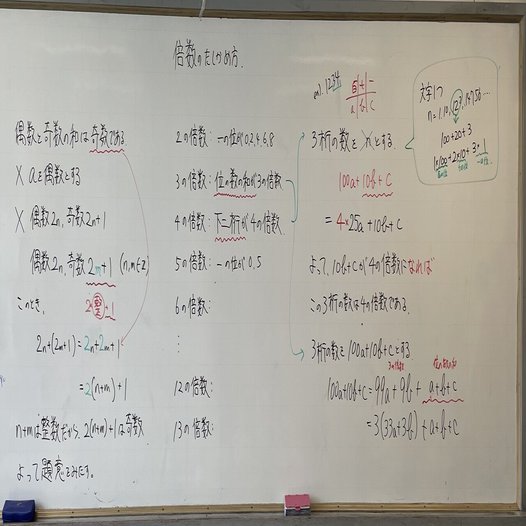 倍数のたしかめ方.
偶数と奇数の和は奇数である.
× aを偶数とする
× 偶数2n, 奇数2n+1
偶数2n, 奇数2m+1 (n,m∈Z)
このとき, 2×整+1
2n+(2m+1) = 2n+2m+1
= 2(n+m)+1
n+mは整数だから, 2(n+m)+1は奇数
よって題意をみたす。
2の倍数: 一の位が0,2,4,6,8
3の倍数: 位の数の和が3の倍数
4の倍数: 下二桁が4の倍数
5の倍数: 一の位が0,5
6の倍数:
⋮
12の倍数:
13の倍数:
ex). 1234
百|十|一
a|b|c
3桁の数を xとする.
100a+10b+c
= 4×25a+10b+c
よって, 10b+cが4の倍数になれば
この3桁の数は4の倍数である.
3桁の数を100a+10b+cとする
3の倍数 位の数の和
100a+10b+c = 99a+9b+a+b+c
= 3(33a+3b)+a+b+c
文字1つ
100+20+3
1×100+2×10+3×1
百の位 十の位 一の位